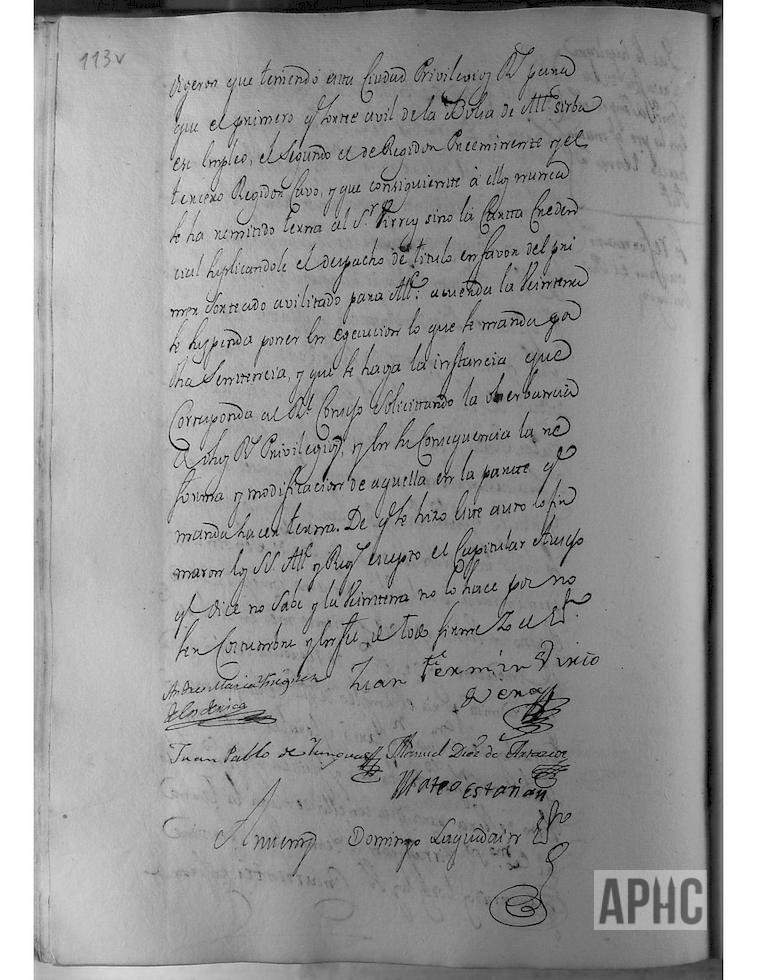 113v
digeron que teniendo esta Ciudad Privilegios Rs para
que el primero qe sortee civil de la Bolsa de Alle sirba
ese Empleo, el segundo el de Regidor Preeminente y el
tercero Regidor Cavo, y que consiguiente à ellos nunca
se ha remitido terna al Sr Virrey sino la Carta Creden
cial suplicandole el despacho de titulo en favor del pri
mer sorteado avilitado para Alle: acuerda la
se suspenda poner en egecucion lo que se manda por
dha Sentencia, y que se haga la instancia que
Corresponda al Rl Consejo solicitando la obserbancia
de sus Rs Privilegios, y en su Consequencia la re
forma y modificacion de aquella en la parte qe
manda hacer terna. De qe se hizo este auto lo fir
maron los SS Alle y Regs escepto el Capitular
qe dice no sabe y la no lo hace por no
ser Costumbre y en fee de todo firme Yo el Esno
Andres Maria Yñiguez
Juan Fermin
de
Juan Pablo de Manuel Diaz de
Mateo Estañan
Antemi Domingo Laguardia Esno
APHC